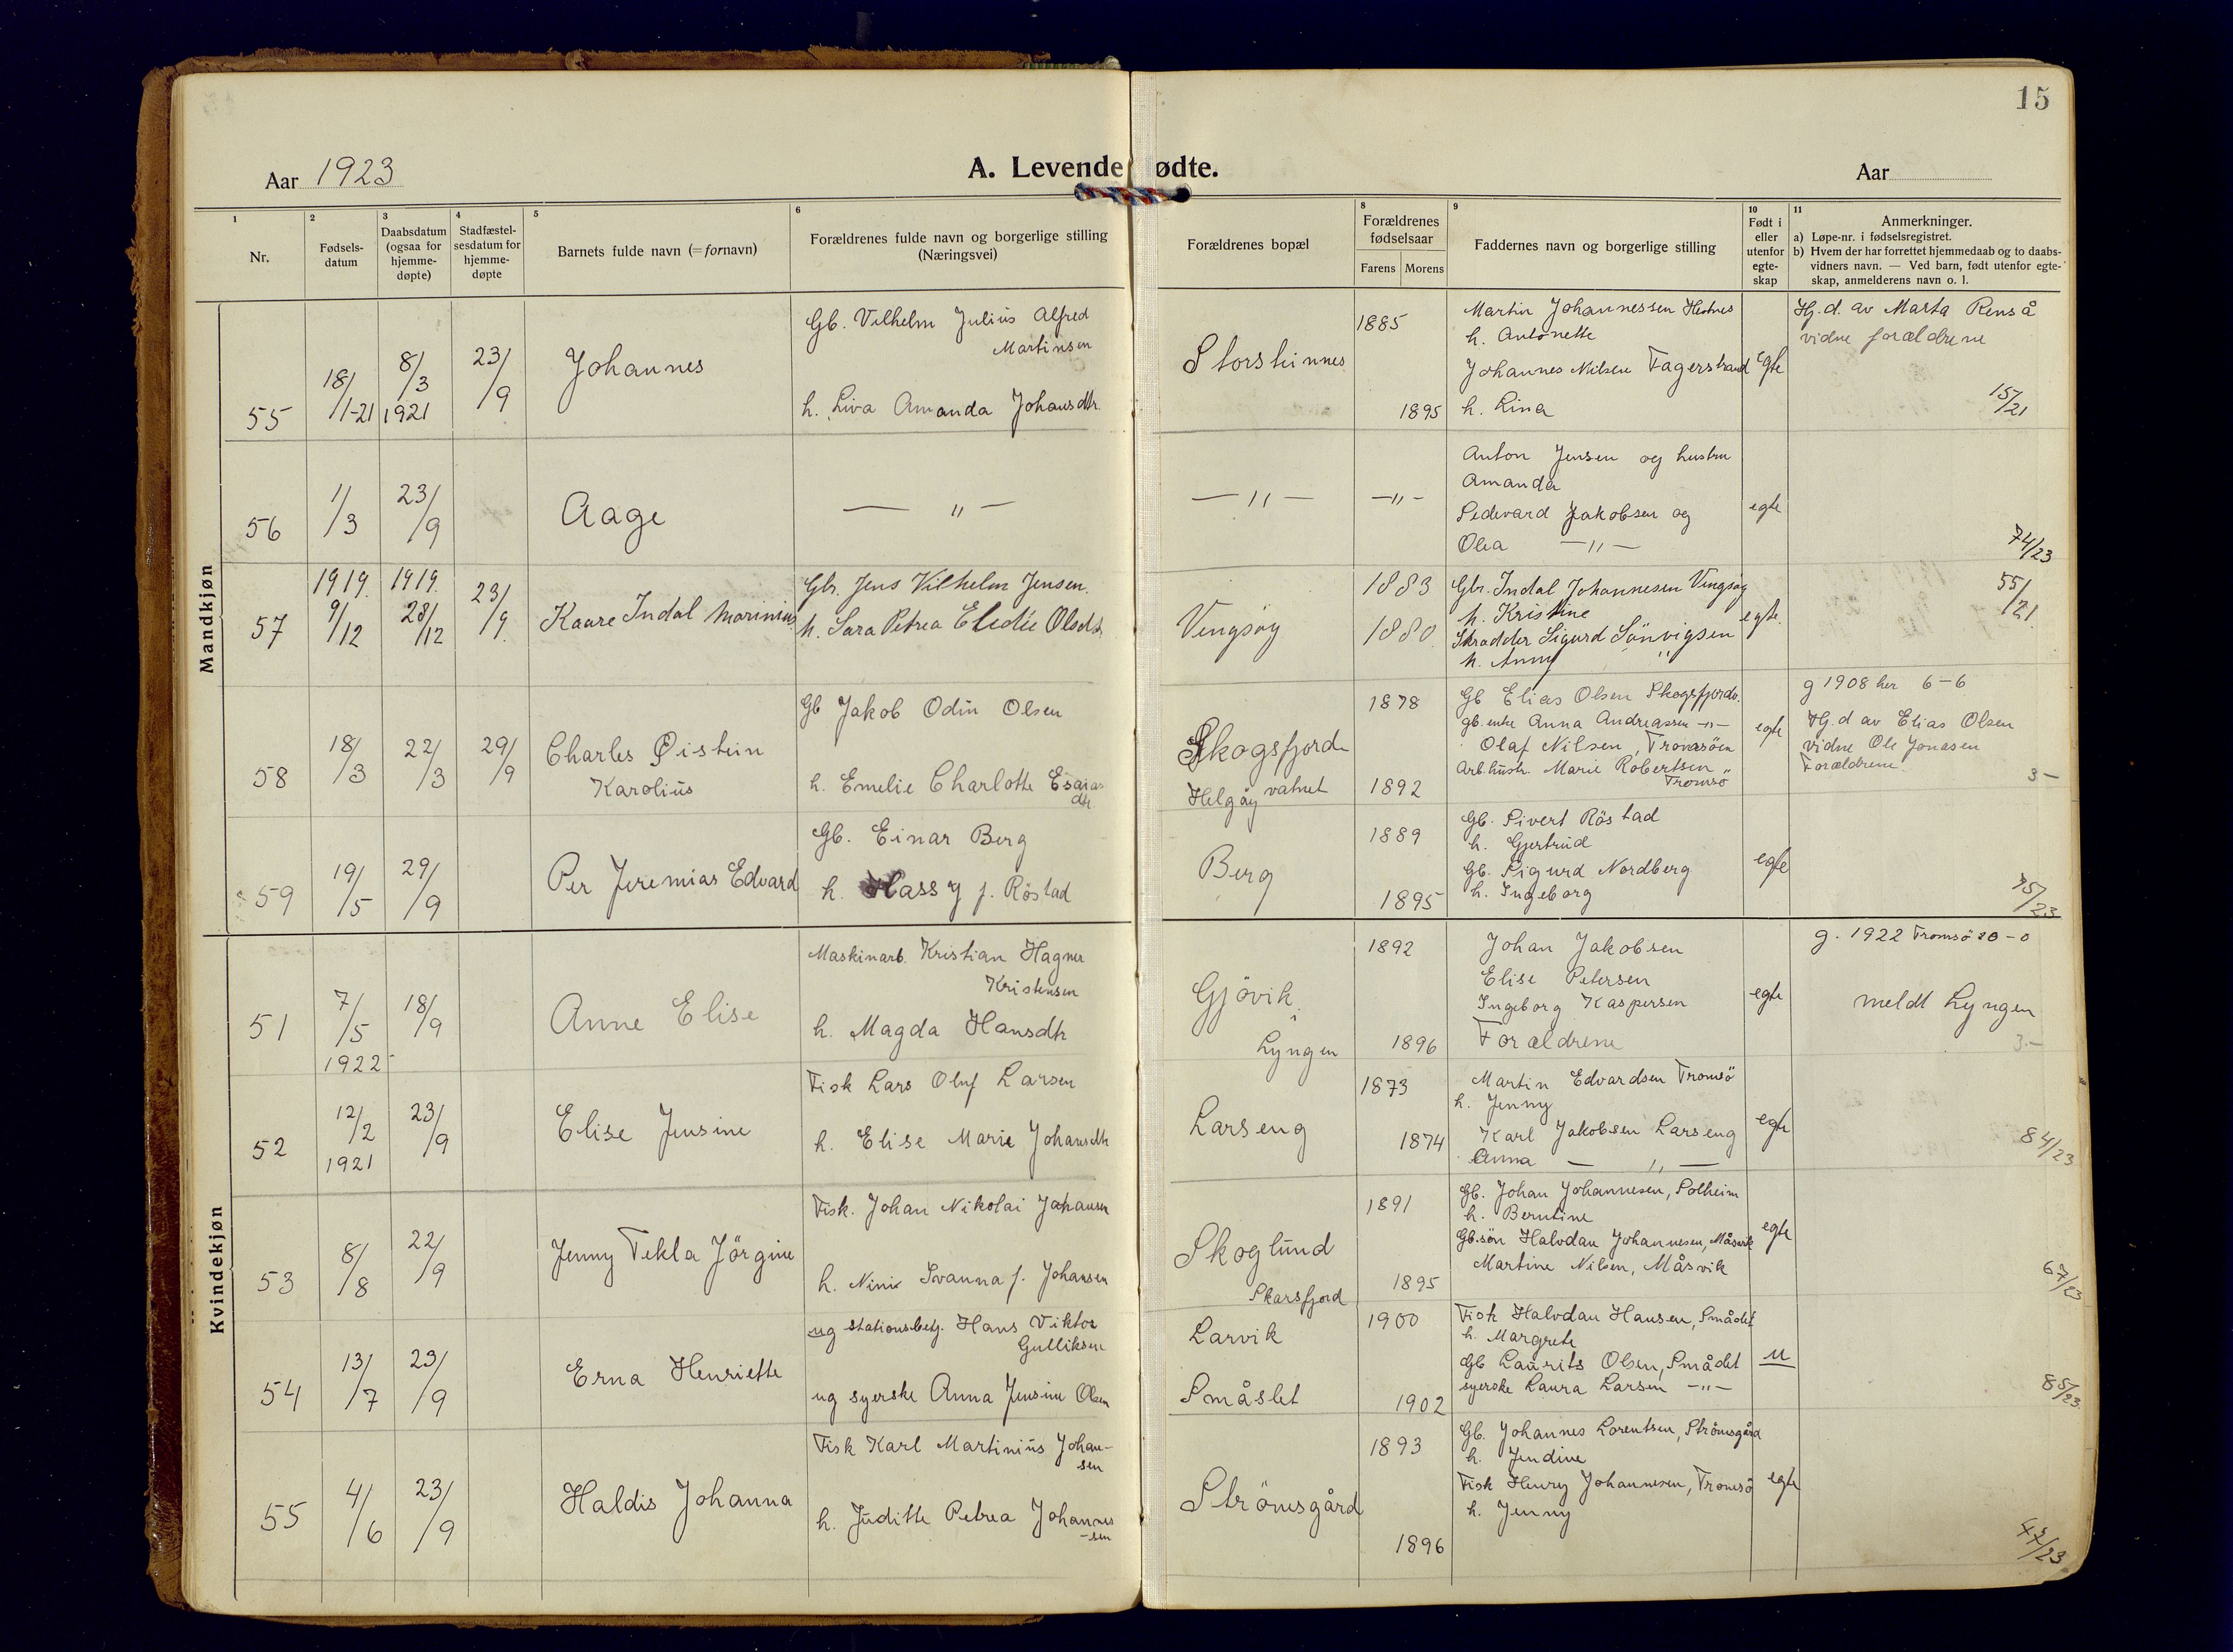 15
Aar 1923
A. Levende
ødte.
Aar
1 2 3 4 5 6 8 9 10 11
Nr.
Fødsels-
datum
Daabsdatum
(ogsaa for
hjemme-
døpte)
Stadfæstel-
sesdatum for
hjemme-
døpte
Barnets fulde navn (= fornavn)
Forældrenes fulde navn og borgerlige stilling
(Næringsvei)
Forældrenes bopæl
Forældrenes
fødselsaar
Farens Morens
Faddernes navn og borgerlige stilling
Født i
eller
utenfor
egte-
skap
Anmerkninger.
a) Løpe-nr. i fødselsregistret.
b) Hvem der har forrettet hjemmedaab og to daabs-
vidners navn. — Ved barn, født utenfor egte-
skap, anmelderens navn o. l.
Mandkjøn
55
18/1-21
8/3
1921
23/9
Johannes
Gb. Vilhelm Julius Alfred
Martinsen
h. Liva Amanda Johansdtr.
Storsteinnes
1885
1895
Martin Johannessen Hestnes
h. Antonette
Johannes Nilsen Fagerstrand
h. Lina
egte
Hj.d. av Marta Renså
vidne forældrene
15/21
56
1/3
23/9
Aage
— " —
— " —
— " —
Anton Jensen og hustru
Amanda
Sedevard Jakobsen og
Olea — " —
egte
74/23
57
1919.
9/12
1919.
28/12
23/9.
Kaare Indal Marinius
Gbr. Jens Vilhelm Jensen.
h. Sara Petrea Eledie Olsdt.
Vengsøy
1883
1880.
Gbr. Indal Johannesen Vengsøy
h. Kristine
Skradder Sigurd Sönvigsen
h. Anny "
egte.
55/21
58
18/3
22/3
29/9
Charles Øistein
Karolius
Gb Jakob Odin Olsen
h. Emelie Charlotte Esaias
dtr
Skogsfjord
vatnet
Helgøy
1878
1892
Gb Elias Olsen Skogsfjordv.
gb. enke Anna Andreassen — " —
Olaf Nilsen, Tromsöen
Arb. hustr. Marie Robertsen
Tromsö
egte
g 1908 her 6-6
Hj.d av Elias Olsen
vidne Ole Jonasen
Forældrene.
3-
59
19/5
29/9
Per Jeremias Edvard
Gb. Einar Berg
h. Hassy f. Röstad
Berg
1889
1895
Gb. Sivert Röstad
h. Gjertrud
Gb. Sigurd Nordberg
h. Ingeborg
egte
75/23
Kvindekjøn
51
7/5
1922
18/9
Anne Elise
Maskinarb. Kristian Hagner
Kristensen
h. Magda Hansdtr
Gjövik,
i
Lyngen
1892
1896
Johan Jakobsen
Elise Petersen
Ingeborg Kaspersen
Forældrene
egte
g. 1922 Tromsö 20-0
meldt Lyngen
3.-
52
12/2
1921
23/9
Elise Jensine
Fisk Lars Oluf Larsen
h. Elise Marie Johansdtr
Larseng
1873
1874
Martin Edvardsen Tromsö
h. Jenny
Karl Jakobsen Larseng
Anna — " —
egte
84/23
53
8/8
22/9
Jenny Tekla Jörgine
Fisk. Johan Nikolai Johansen
h. Nini Ivanna f. Johansen
Skoglund
Skarsfjord
1891
1895
Gb. Johan Johannesen, Solheim
h. Berntine
Gb.sön Halvdan Johannesen, Måsvik
Martine Nilsen, Måsvik
egte
67/23
54
13/7
23/9
Erna Henriette
ug stationsbetj. Hans Viktor
Gulliksen
ug syerske Anna Jensine Olsen
Larvik
Småslet
1900
1902
Fisk Halvdan Hansen, Smådet
h. Margrete
Gb Laurits Olsen, Smådet
syerske Laura Larsen — " —
U
85/23
55
4/6
23/9
Haldis Johanna
Fisk Karl Martinius Johan-
sen
h. Juditte Petrea Johannes
-sen
Strömsgård
1893
1896
Gb. Johannes Lorentsen, Strömsgård
h. Jendine
Fisk Henry Johannesen, Tromsö
h. Jenny
egte
47/23